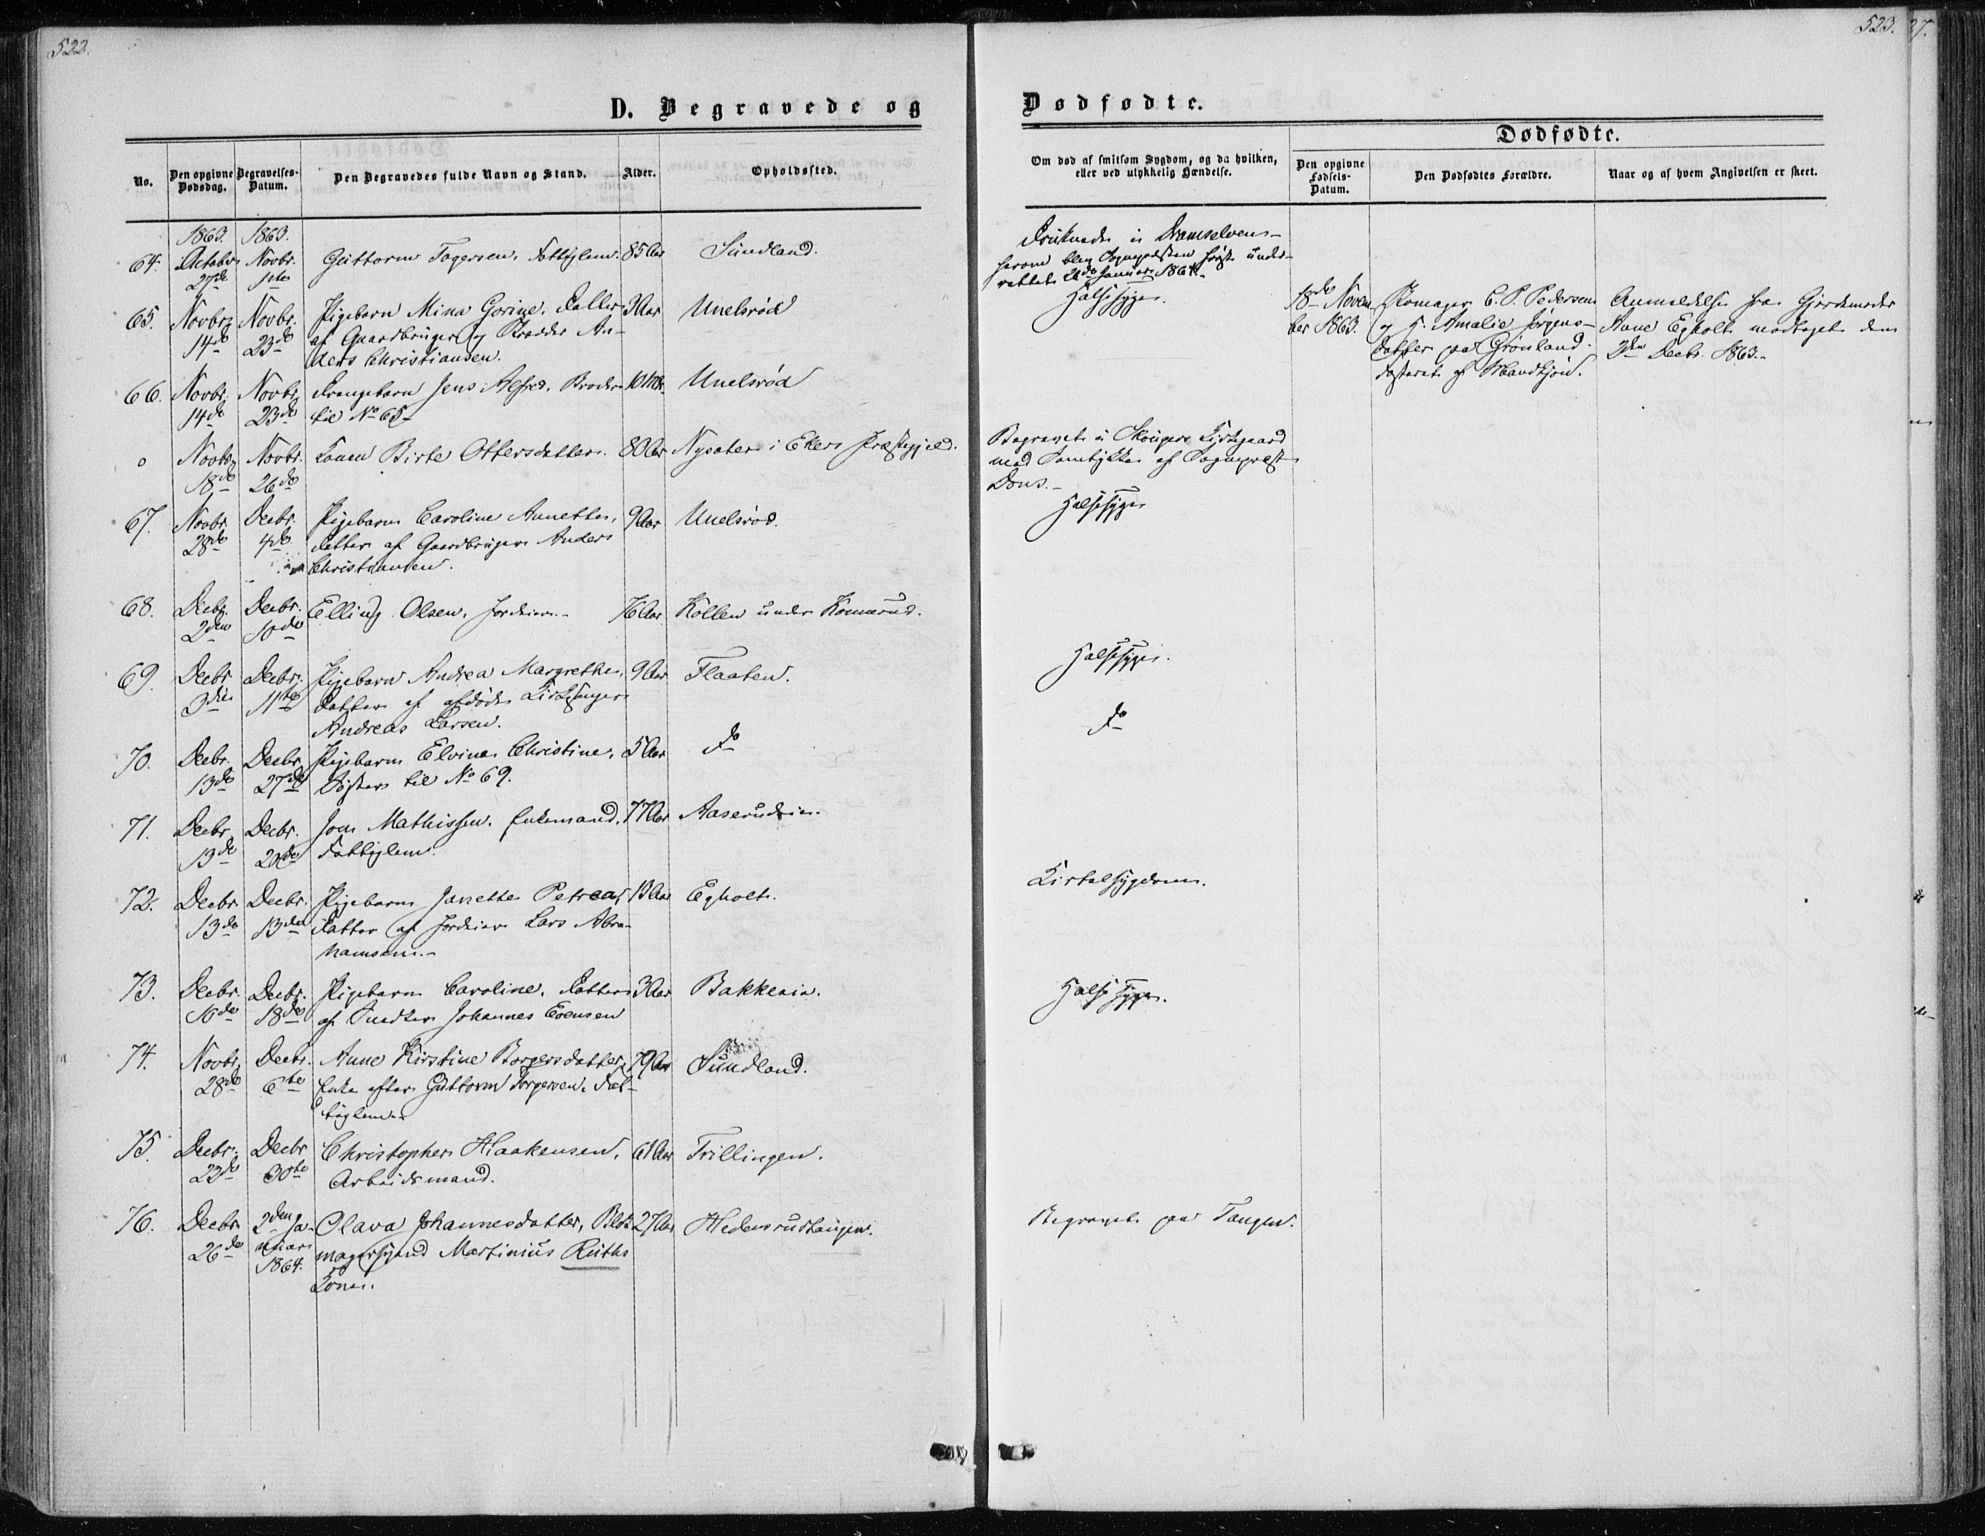 522.
D. Begravede og
No.
Den opgivne Dødsdag.
Begravelses-Datum.
Den Begravedes fulde Navn og Stand.
Alder.
Opholdssted.
1863. 1863.
64. October 27de Novbr. 1ste Guttorm Togersen, Fattiglem. 85 Aar Sundland.
65. Novbr. 14de Novbr. 23de Pigebarn Mina Gorine, Datter 3 Aar Unelsrød
af Gaardbruger og Skrædder An-
ders Christiansen.
66. Novbr. 14de Novbr. 23de Drengebarn Jens Alfred, Broder 10 Mdr. Unelsrød
til No 65.
o Novbr. 18de Novbr. 26de Konen Birte Ottersdatter. 80 Aar Nysæter i Ekers Præstegjeld.
67. Novbr. 28de Decbr. 4de Pigebarn Caroline Annette, 9 Aar Unelsrød.
Datter af Gaardbruger Anders
Christiansen.
68. Decbr. 2den Decbr. 10de Elling Olsen, Jordeier. 76 Aar Kollen under Konnerud.
69. Decbr 3die Decbr. 11te Pigebarn Andrea Margrethe, 9 Aar Flaaten.
Datter af afdøde Kirkesanger
Andreas Larsen.
70. Decbr. 13de Decbr. 27de Pigebarn Elvina Christine, 5 Aar do
Søster til No 69.
71. Decbr. 13de Decbr. 20de Jon Mathissen, Enkemand, 77 Aar Aaserudeie.
Fattiglem.
72. Decbr 13de Decbr. 13de Pigebarn Janette Petrea, 13 Aar Egholt.
Datter af Jordeier Lars Abra-
hamsen.
73. Decbr. 16de Decbr. 18de Pigebarn Caroline, Datter 3 Aar Bakkeeie.
af Snedker Johannes Evensen
74. Novbr. 28de Decbr. 6te Anne Kirstine Borgersdatter, 79 Aar Sundland.
Enke efter Guttorm Torgersen, Fat-
tiglem.
75. Decbr. 23de Decbr 30te Christopher Haakensen, 61 Aar Trillingen.
Arbeidsmand.
76. Decbr 26de 2den Ja-nuar 1864. Olava Johannesdatter, Blok- 27 Aar Hedensrudtangen.
magersvend Martinius Ruths
Kone.
523.
27.
Dødfødte.
Om død af smitsom Sygdom, og da hvilken, eller ved ulykkelig Hændelse.
Dødfødte.
Den opgivne Fødsels-Datum.
Den Dødfødtes Forældre.
Naar og af hvem Angivelsen er skeet.
Druknede i Dramselven
herom blev Sognepræsten først under-
rettet Januar 1864.
Halssyge.
18de Novem-
ber 1863.
Skomager C. P. Pedersen
og H. Amalie Jørgens-
datter paa Grønland.
Fosteret af Mandkjøn.
Anmeldelse fra Gjordemoder
Hane Egholt modtaget den
2den Decbr. 1863.
Begravet i Skouger Kirkegaard
med Samtykke af Sognepræst
Dons.
Halssyge
Halssyge.
do
Kirtelsygdom.
Halssyge.
Begravet paa Tangen.